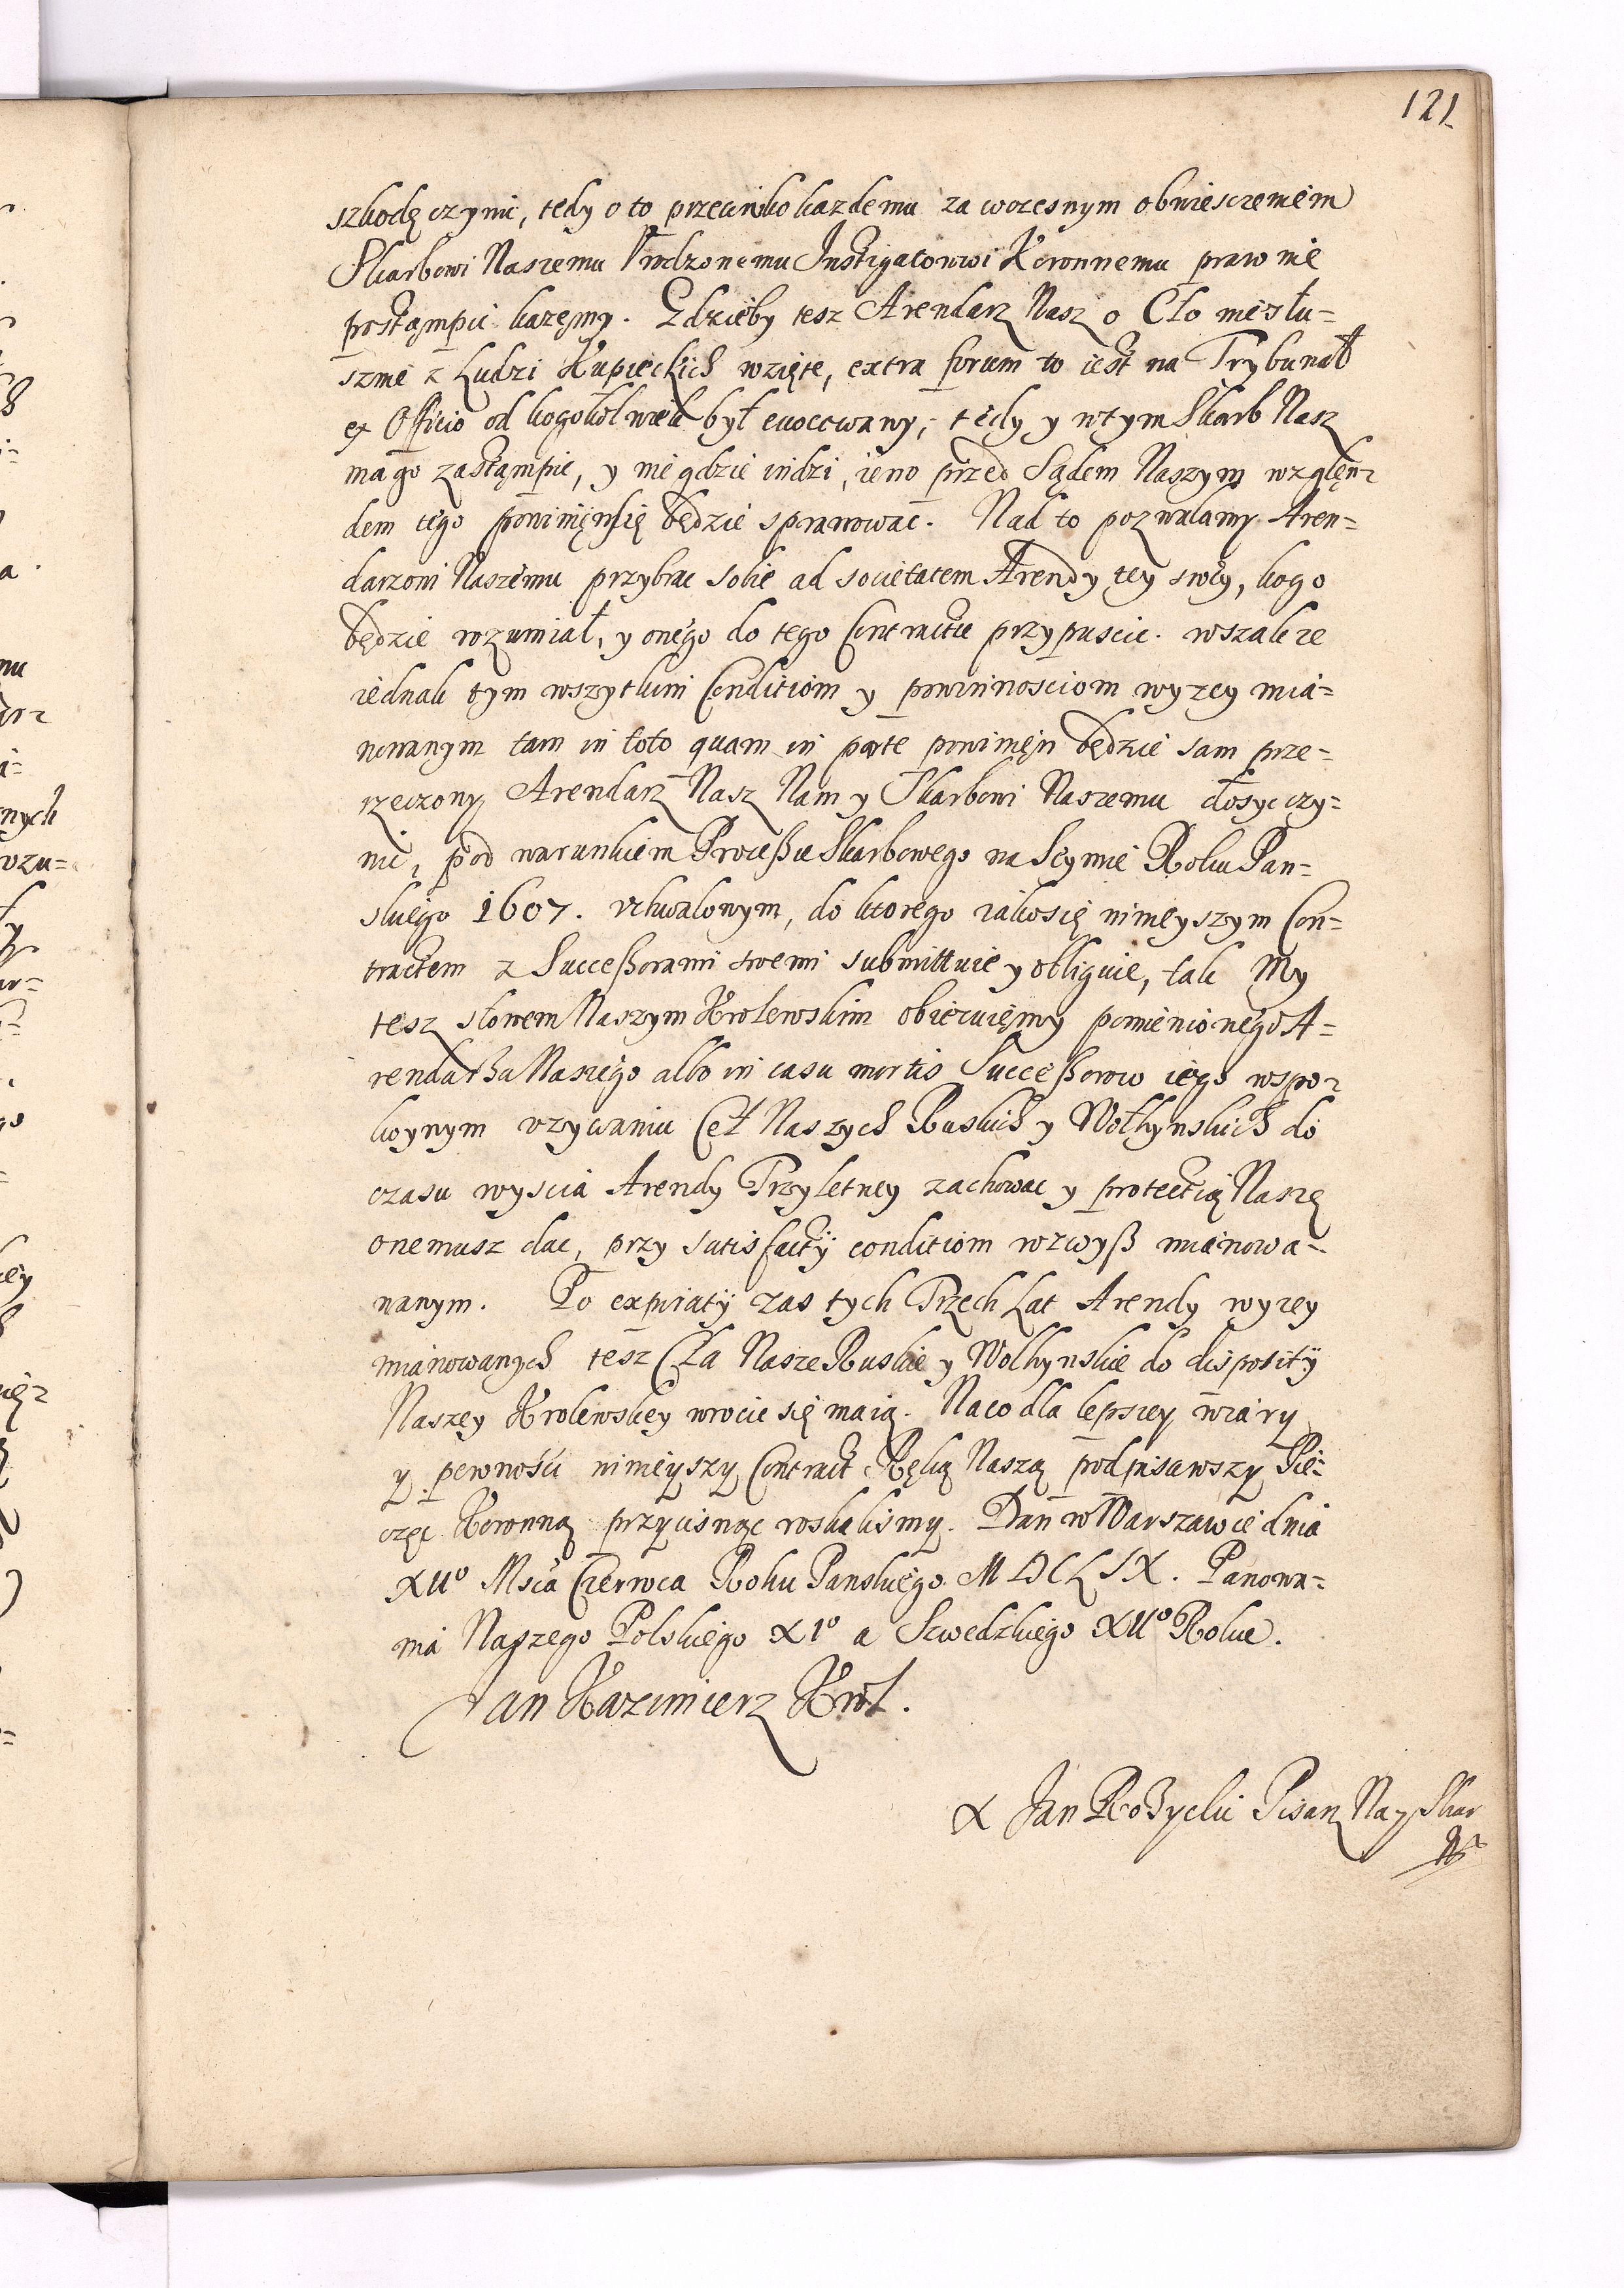 121
szkodę czynic, tedy o to przeciwko kazdemu za wczesnym obwiesczeniem
Skarbowi Naszemu Vrodzonemu Instigatorowi Koronnemu prawnie
postąmpic kazęmy. Gdzieby tesz Arendarz Nasz o Cło niesłu=
sznie z Ludzi Kupieckich wzięte, extra forum to iest na Trybunał
ex Officio od kogokolwiek był euocowany, tedy y w tym Skarb Nasz
ma go zastąmpic, y nie gdzie indzi, ieno przed Sądem Naszym wzglęn=
dem tego powinięn się będzie sprawowac. Nad to pozwalamy Aren=
darzowi Naszemu przybrac sobie ad societatem Arendy tey swey, kogo
będzie rozumiał, y onego do tego Contractu przypuscic. wszakze
iednak tym wszytkim Conditiom y powinnosciom wyzey mia=
nowanym tam in toto quam in parte powinięn będzie sam prze=
rzeczony Arendarz Nasz Nam y Skarbowi Naszemu dosyc czy=
nic, pod warunkiem Processu Skarbowego na Seymie Roku Pan=
skiego 1607. vchwalonym, do ktorego iako się ninieyszym Con=
tractem z Successorami swemi submittuie y obliguie, tak My
tesz słowem Naszym Krolewskim obiecuięmy pomienionego A=
rendarza Naszego albo in casu mortis Successorow iego wspo=
koynym vzywaniu Ceł Naszych Ruskich y Wołhynskich do
czasu wyscia Arendy Trzyletney zachowac y protectią Naszę
onemusz dac, przy satisfactÿ conditiom wzwyß mianowa=
nanym. Po expiratÿ zas tych Trzech Lat Arendy wyzey
mianowanych tesz Cła Nasze Ruskie y Wolhynskie do dispositÿ
Naszey Krolewskey wrocic się maią. Na co dla lepszey wiary
y pewnosci ninieyszy Contract Ręką Naszą podpisawszy Pie=
częc Koronną przycisnąc roskalismy. Dan w Warszawie dnia
XIIº Msca Czerwca Roku Panskiego MDCLIX. Panowa=
nia Naszego Polskiego XIº a Szwedzkiego XIIº Roku.
Jan Kazimierz Krol.
X Jan Rożycki Pisarz Na Skar